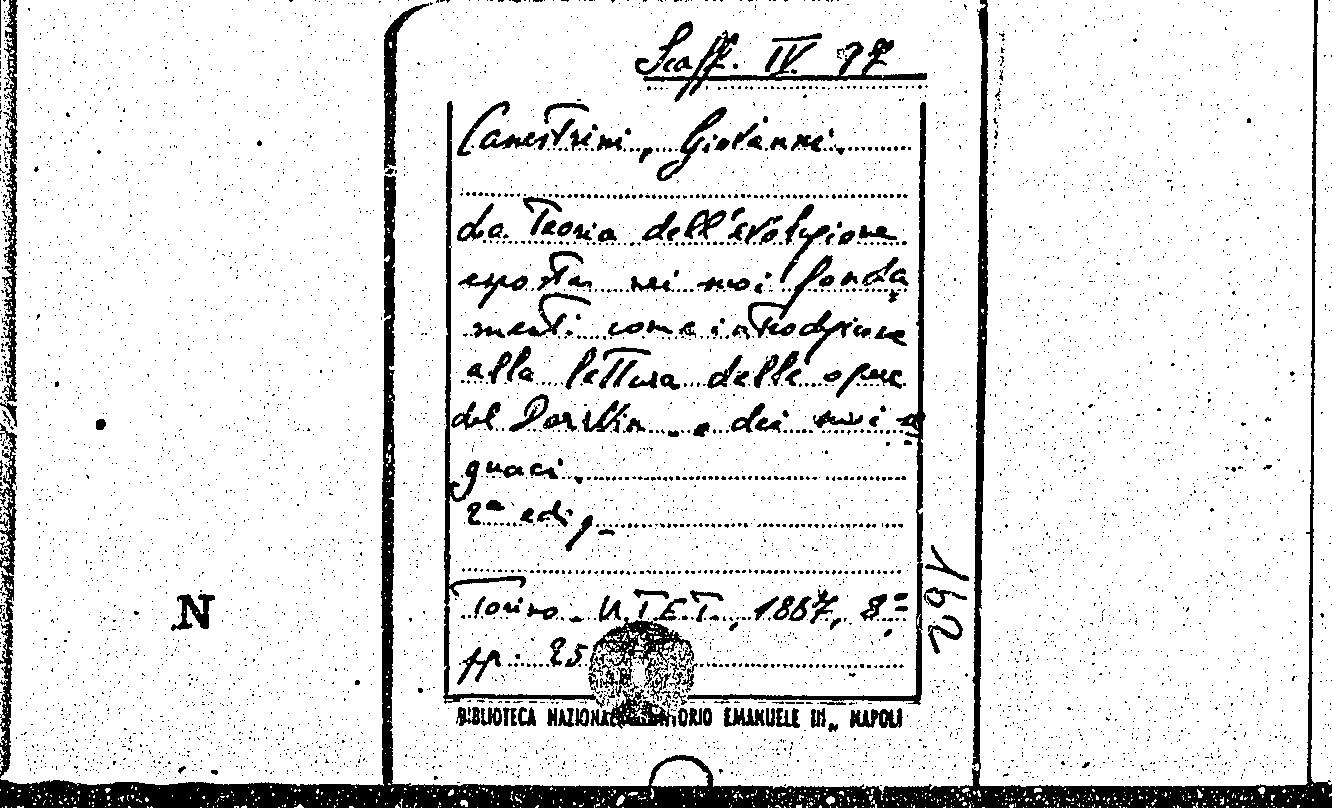 Scaff. IV. 97
Canestrini, Giovanni.
La Teoria dell'evoluzione
esposta nei suoi fonda
menti come introduzione
alla lettura delle opere
del Darwin e dei suoi se
guaci.
2ª ediz.
Torino. U.T.E.T., 1887, 8.°
pp. 25
BIBLIOTECA NAZIONALE EMANUELE III„ NAPOLI
162
N